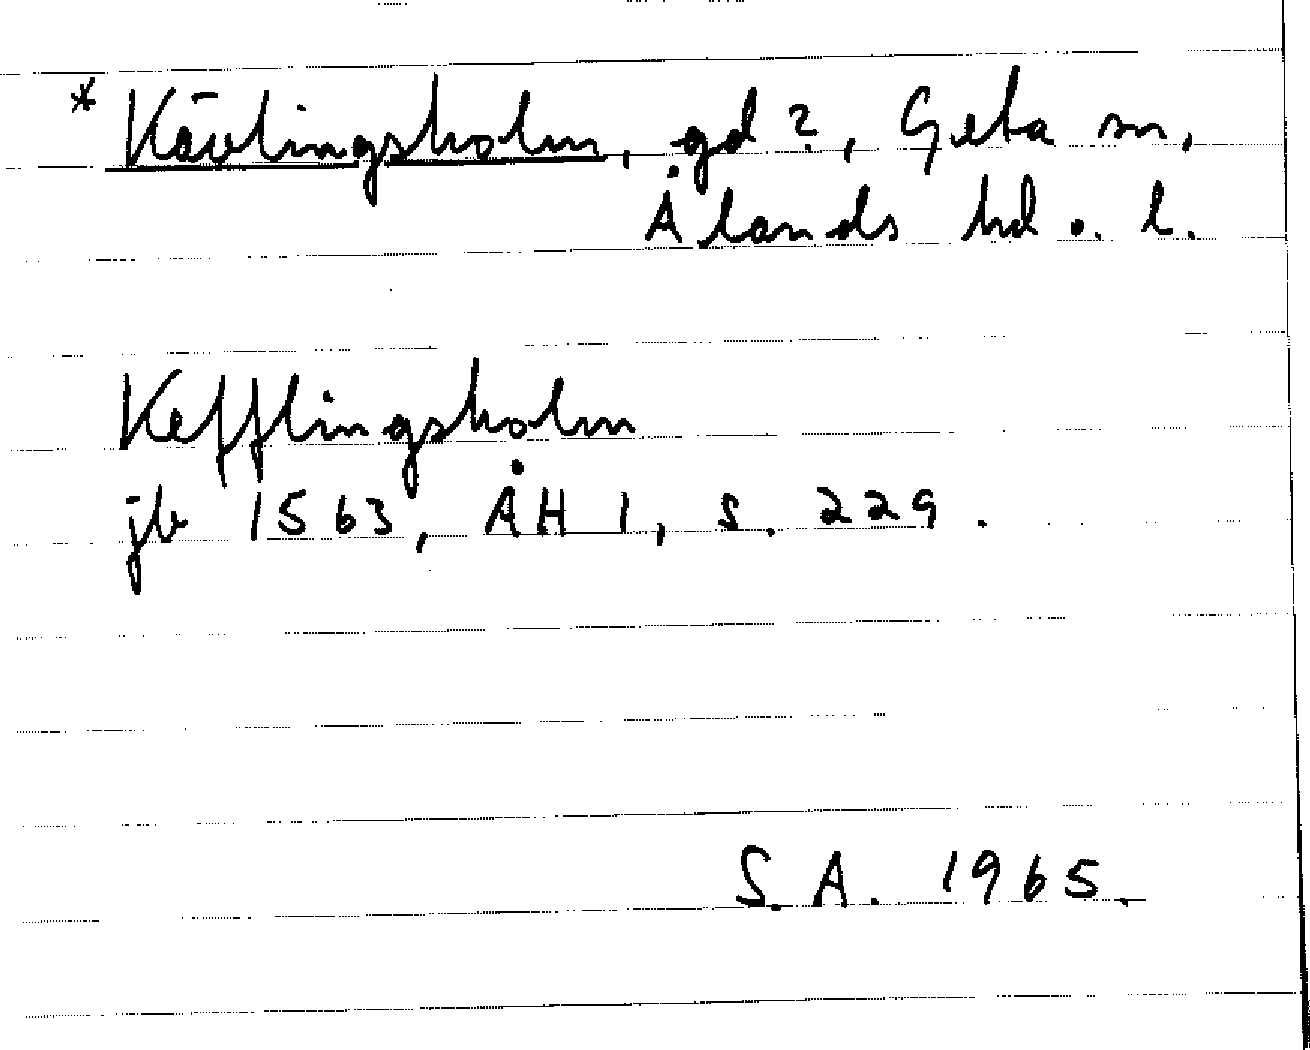 * Kävlingsholm, gd?, Geta sn,
Ålands hd o. l.
Kefflingsholm
jb 1563, ÅH 1, s. 229.
S. A. 1965.